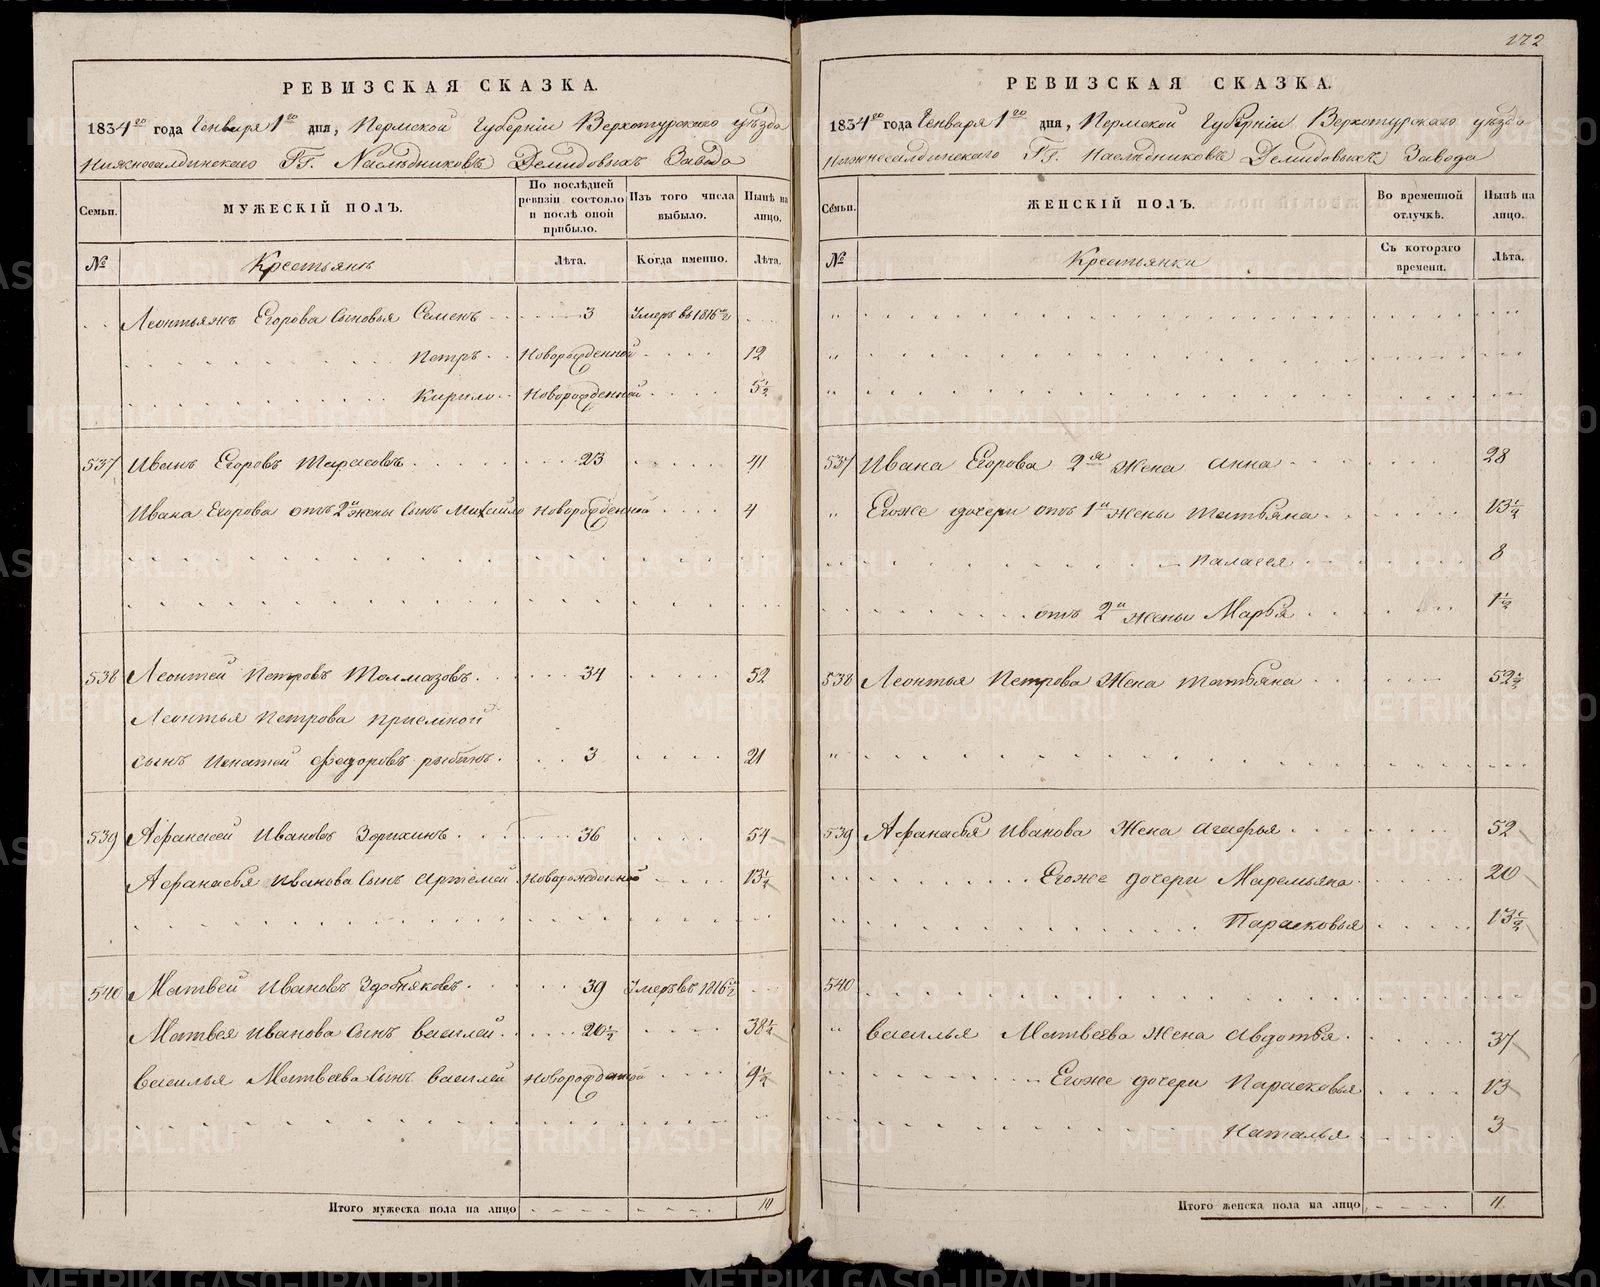 172
РЕВИЗСКАЯ СКАЗКА.
1834го года Генваря 1го дня, Пермской Губернiи Верхотурского уѣзда
Нижнесалдинскаго Гг. Наслѣдниковъ Демидовыхъ Завода
Семьи. МУЖЕСКIЙ ПОЛЪ. По послѣдней ревизiи состояло и послѣ оной прибыло. Изъ того числа выбыло. Нынѣ на лицо.
№ Крестьянъ Лѣта. Когда именно. Лѣта.
Егорова сыновья Семенъ 3 Умеръ въ 1816 г
Петръ Новорожденной 12
Кирило Новорожденной 5½
537 Иванъ Егоровъ Тарасовъ 23 41
Ивана Егорова отъ 2й жены сынъ Михайло Новорожденной 4
538 Леонтей Петровъ Толмазовъ 34 52
Леонтья Петрова приемной
сынъ Игнатей Федоровъ Рыбинъ 3 21
539 Афанасей Ивановъ Зорихинъ 36 54
Афанасья Иванова сынъ Артемей Новорожденной 13½
540 Матвей Ивановъ Здобняковъ 39 Умеръ въ 1816 г
Матвея Иванова сынъ Василей 20½ 38½
Василья Матвеева сынъ Василей Новорожденной 9½
Итого мужеска пола на лицо 10
РЕВИЗСКАЯ СКАЗКА.
1834го года Генваря 1го дня, Пермской Губернiи Верхотурскаго уѣзда
Нижнесалдинскаго Гг. Наслѣдниковъ Демидовыхъ Завода
Семьи. ЖЕНСКIЙ ПОЛЪ. Во временной отлучкѣ. Нынѣ на лицо.
№ Крестьянки Съ котораго времени. Лѣта.
537 Ивана Егорова 2я жена Анна 28
Егоже дочери отъ 1й жены Татьяна 13½
Паласея 8
отъ 2й жены Марья 1½
538 Леонтья Петрова жена Татьяна 52½
539 Афанасья Иванова жена Агафья 52
Егоже дочери Маремьяна 20
Парасковья 13½
540
Василья Матвеева жена Авдотья 37
Егоже дочери Парасковья 13
Наталья 3
Итого женска пола на лицо 11
METRIKI.GASO-URAL.RU